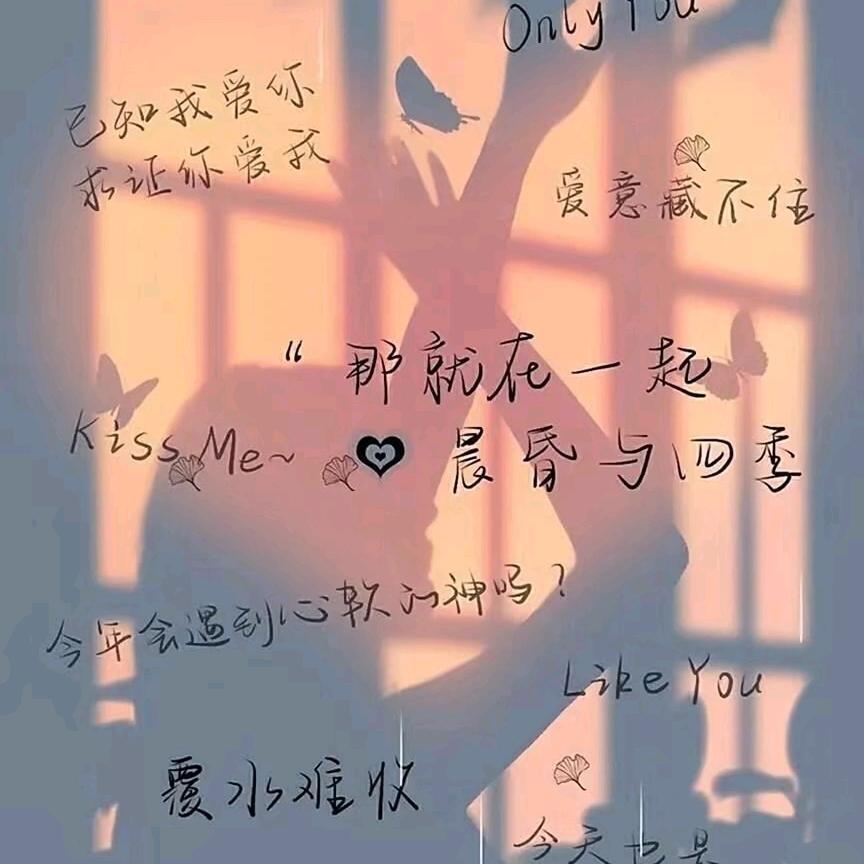 Only You
已知我爱你
求证你爱我
爱意藏不住
“那就在一起
Kiss Me~
晨昏与四季
今年会遇到心软的神吗？
Like You
覆水难收
今天也是